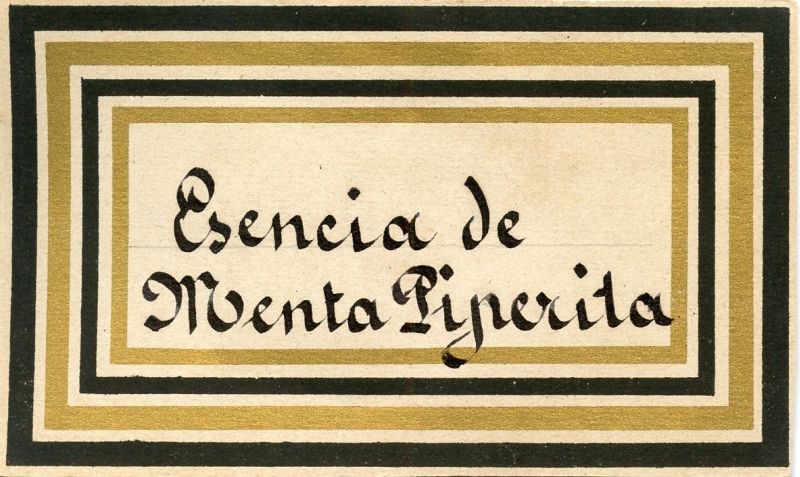 Esencia de
Menta Piperita